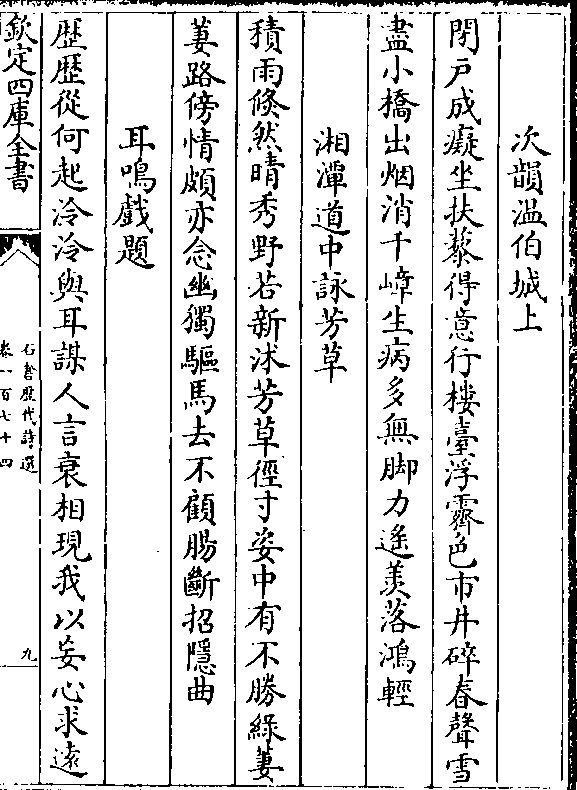 次韻温伯城上
閉戶成癡坐扶藜得意行樓臺浮霽色市井碎春聲雪
盡小橋出烟消千嶂生病多無脚力遙羨落鴻輕
湘潭道中詠芳草
積雨倐然晴秀野若新沐芳草徑寸姿中有不勝綠萋
萋路傍情頗亦念幽獨驅馬去不顧腸斷招隱曲
耳鳴戲題
歴歴從何起泠泠與耳謀人言衰相現我以妄心求遠
欽定四庫全書
石倉歴代詩選
卷一百七十四
九